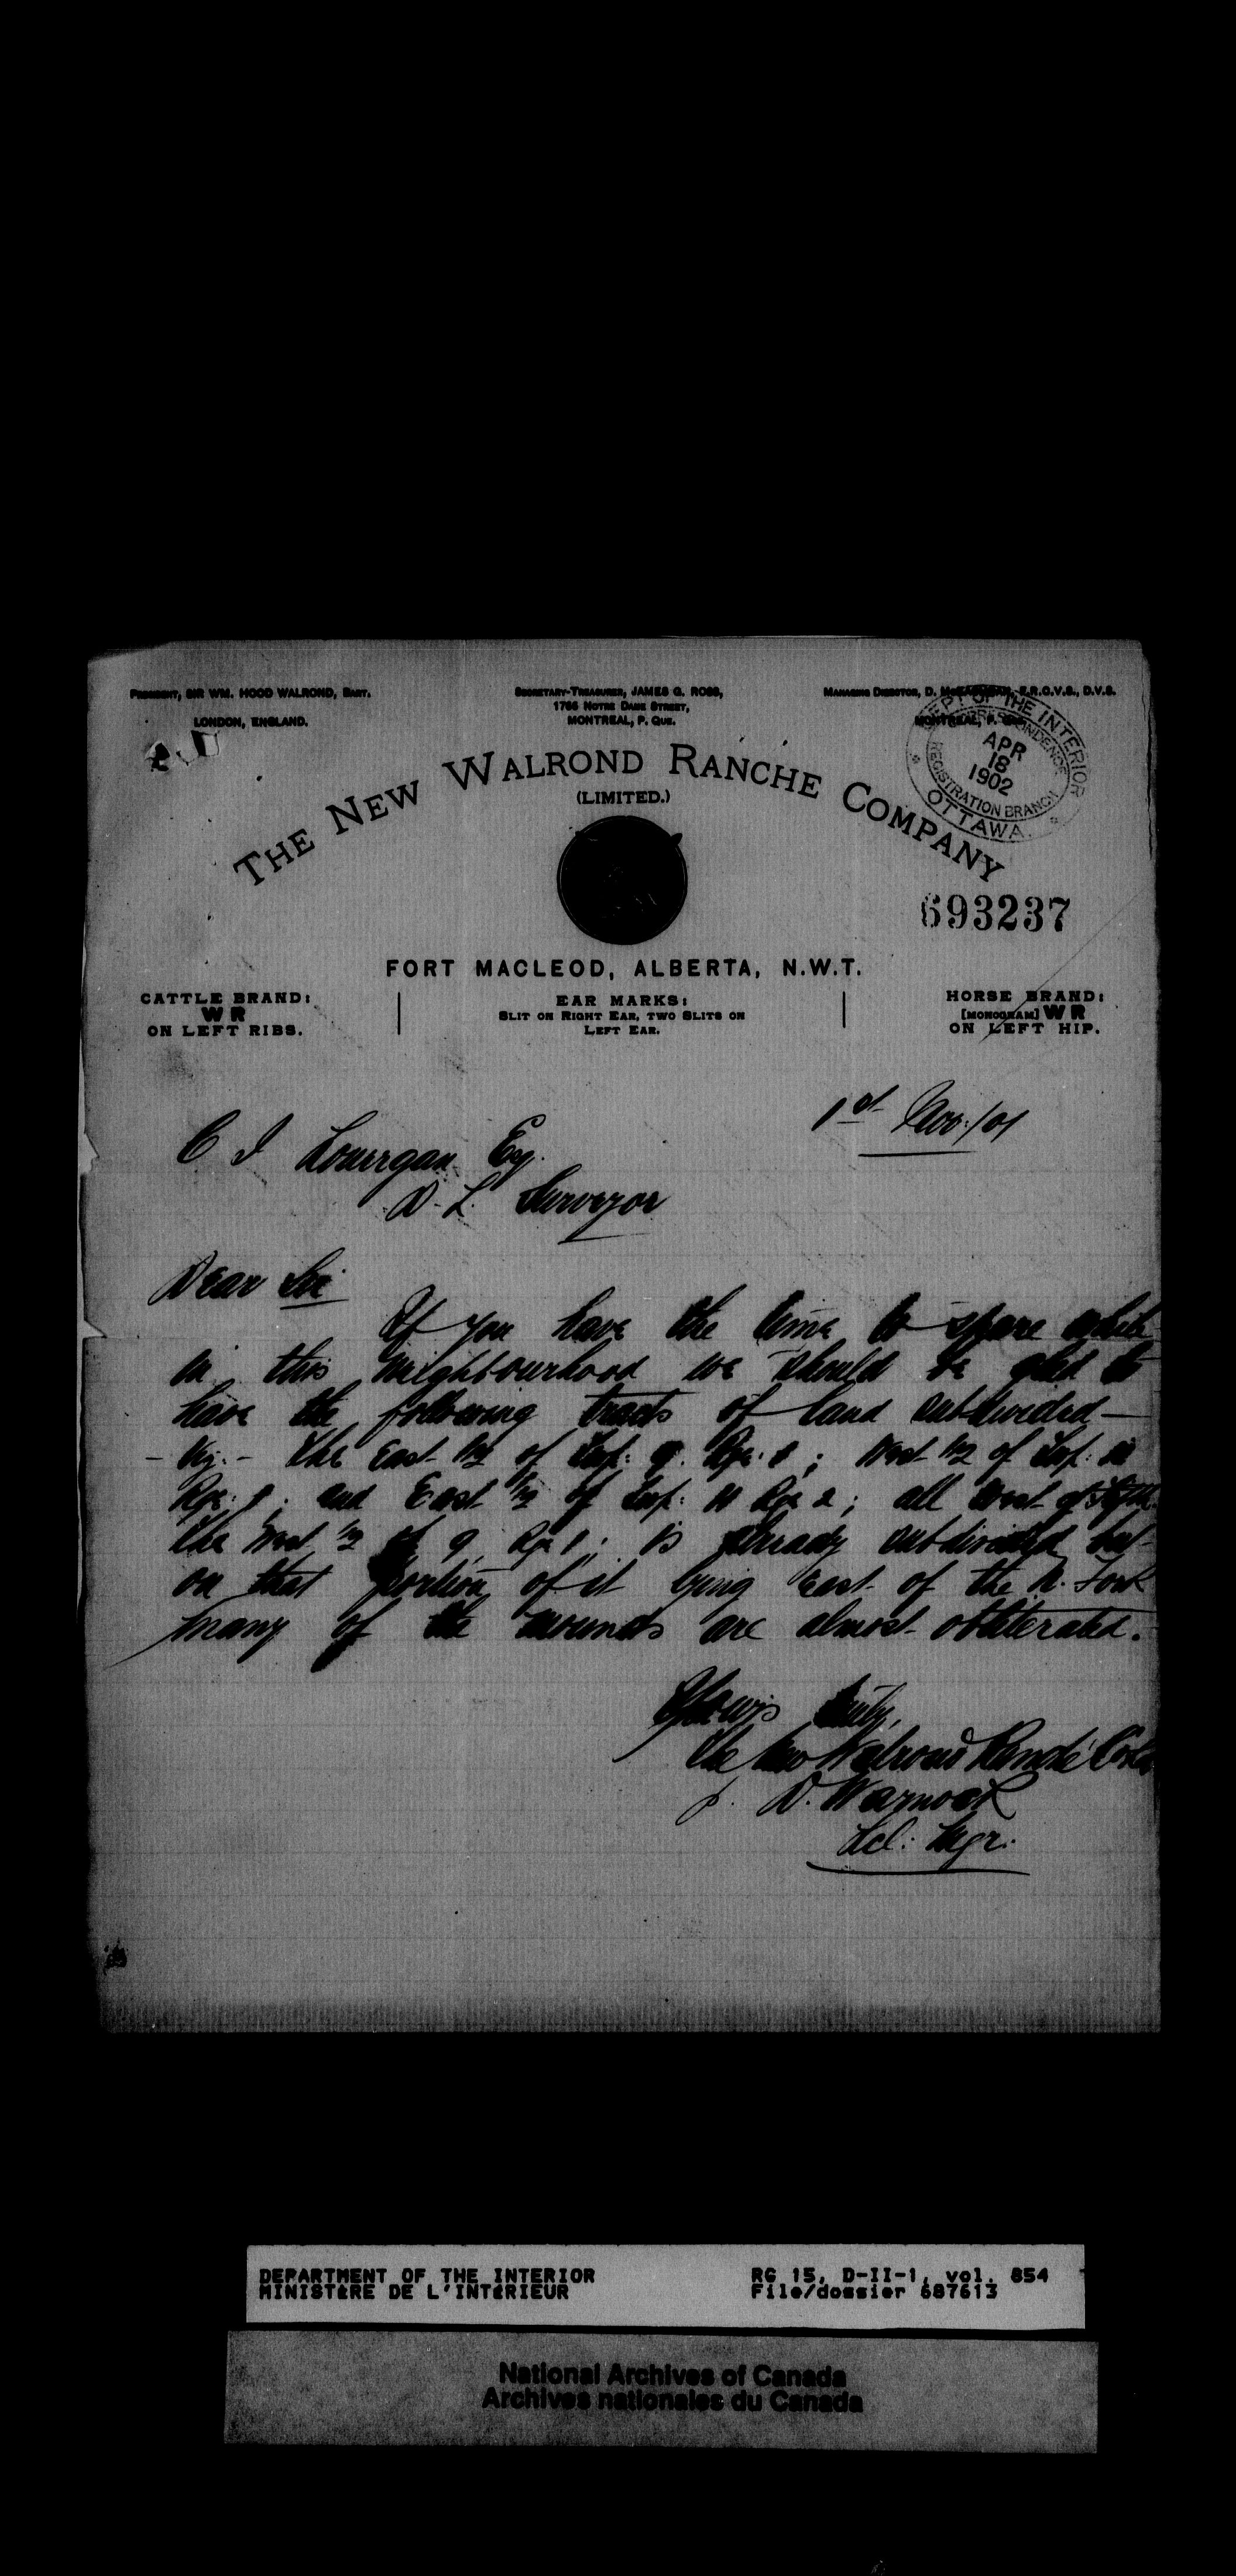 President, SIR WM. HOOD WALROND, Bart.
LONDON, ENGLAND.
Secretary-Treasurer, JAMES G. ROSS,
1766 Notre Dame Street,
MONTREAL, P. Que.
Managing Director, D. F.R.C.V.S., D.V.S.
MONTREAL, P.
DEPT OF THE INTERIOR
CORRESPONDENCE
APR
18
1902
REGISTRATION BRANCH
OTTAWA.
THE NEW WALROND RANCHE COMPANY
(LIMITED.)
693237
FORT MACLEOD, ALBERTA, N.W.T.
CATTLE BRAND:
WR
ON LEFT RIBS.
EAR MARKS:
Slit on Right Ear, Two Slits on
Left Ear.
HORSE BRAND:
[MONOGRAM] WR
ON LEFT HIP.
1st Nov:/01
C J Lonergan Esq.
D. L. Surveyor
Dear Sir
If you have the time to spare while
in this neighbourhood we should be glad to
have the following tracts of land subdivided —
- Viz. - The East 1/2 of Twp: 9. Rge. 1; West 1/2 of Twp:
Rge: 1; and East 1/2 of Twp: Rge 2; all west of
the West 1/2 of 9 Rge 1; is already subdivided but
on that portion of it lying East of the N. Fork
many of the mounds are almost obliterated.
Yours truly,
The New Walrond Ranche
p. D. Warnock
Lcl: Mgr.
DEPARTMENT OF THE INTERIOR
MINISTÈRE DE L'INTÉRIEUR
RG 15, D-II-1, vol. 854
File/dossier 687613
National Archives of Canada
Archives nationales du Canada